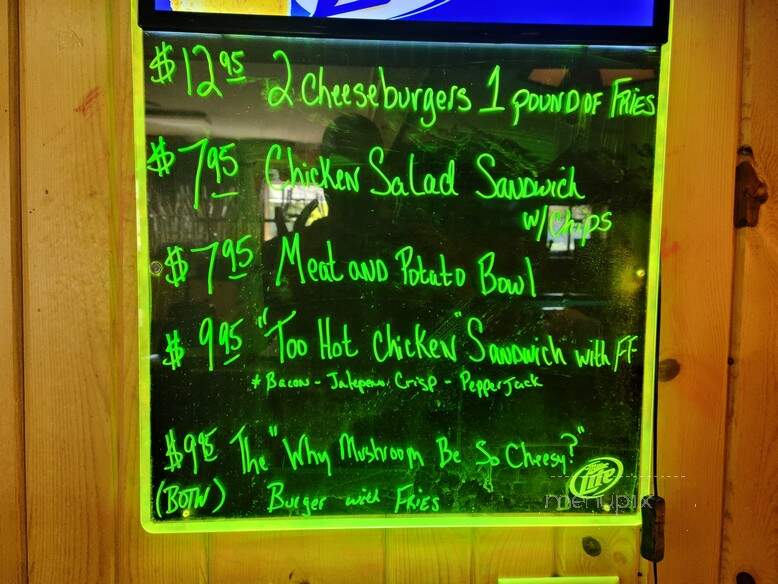 $12.95 2 Cheeseburgers 1 POUND OF FRIES
$7.95 Chicken Salad Sandwich
w/Chips
$7.95 Meat AND Potato Bowl
$9.95 "Too Hot Chicken" Sandwich with FF
* Bacon - Jalepeno Crisp - Pepperjack
$9.95 The "Why Mushroom Be So Cheesy?"
(BOTW) Burger with FRIES
Lite
menupix